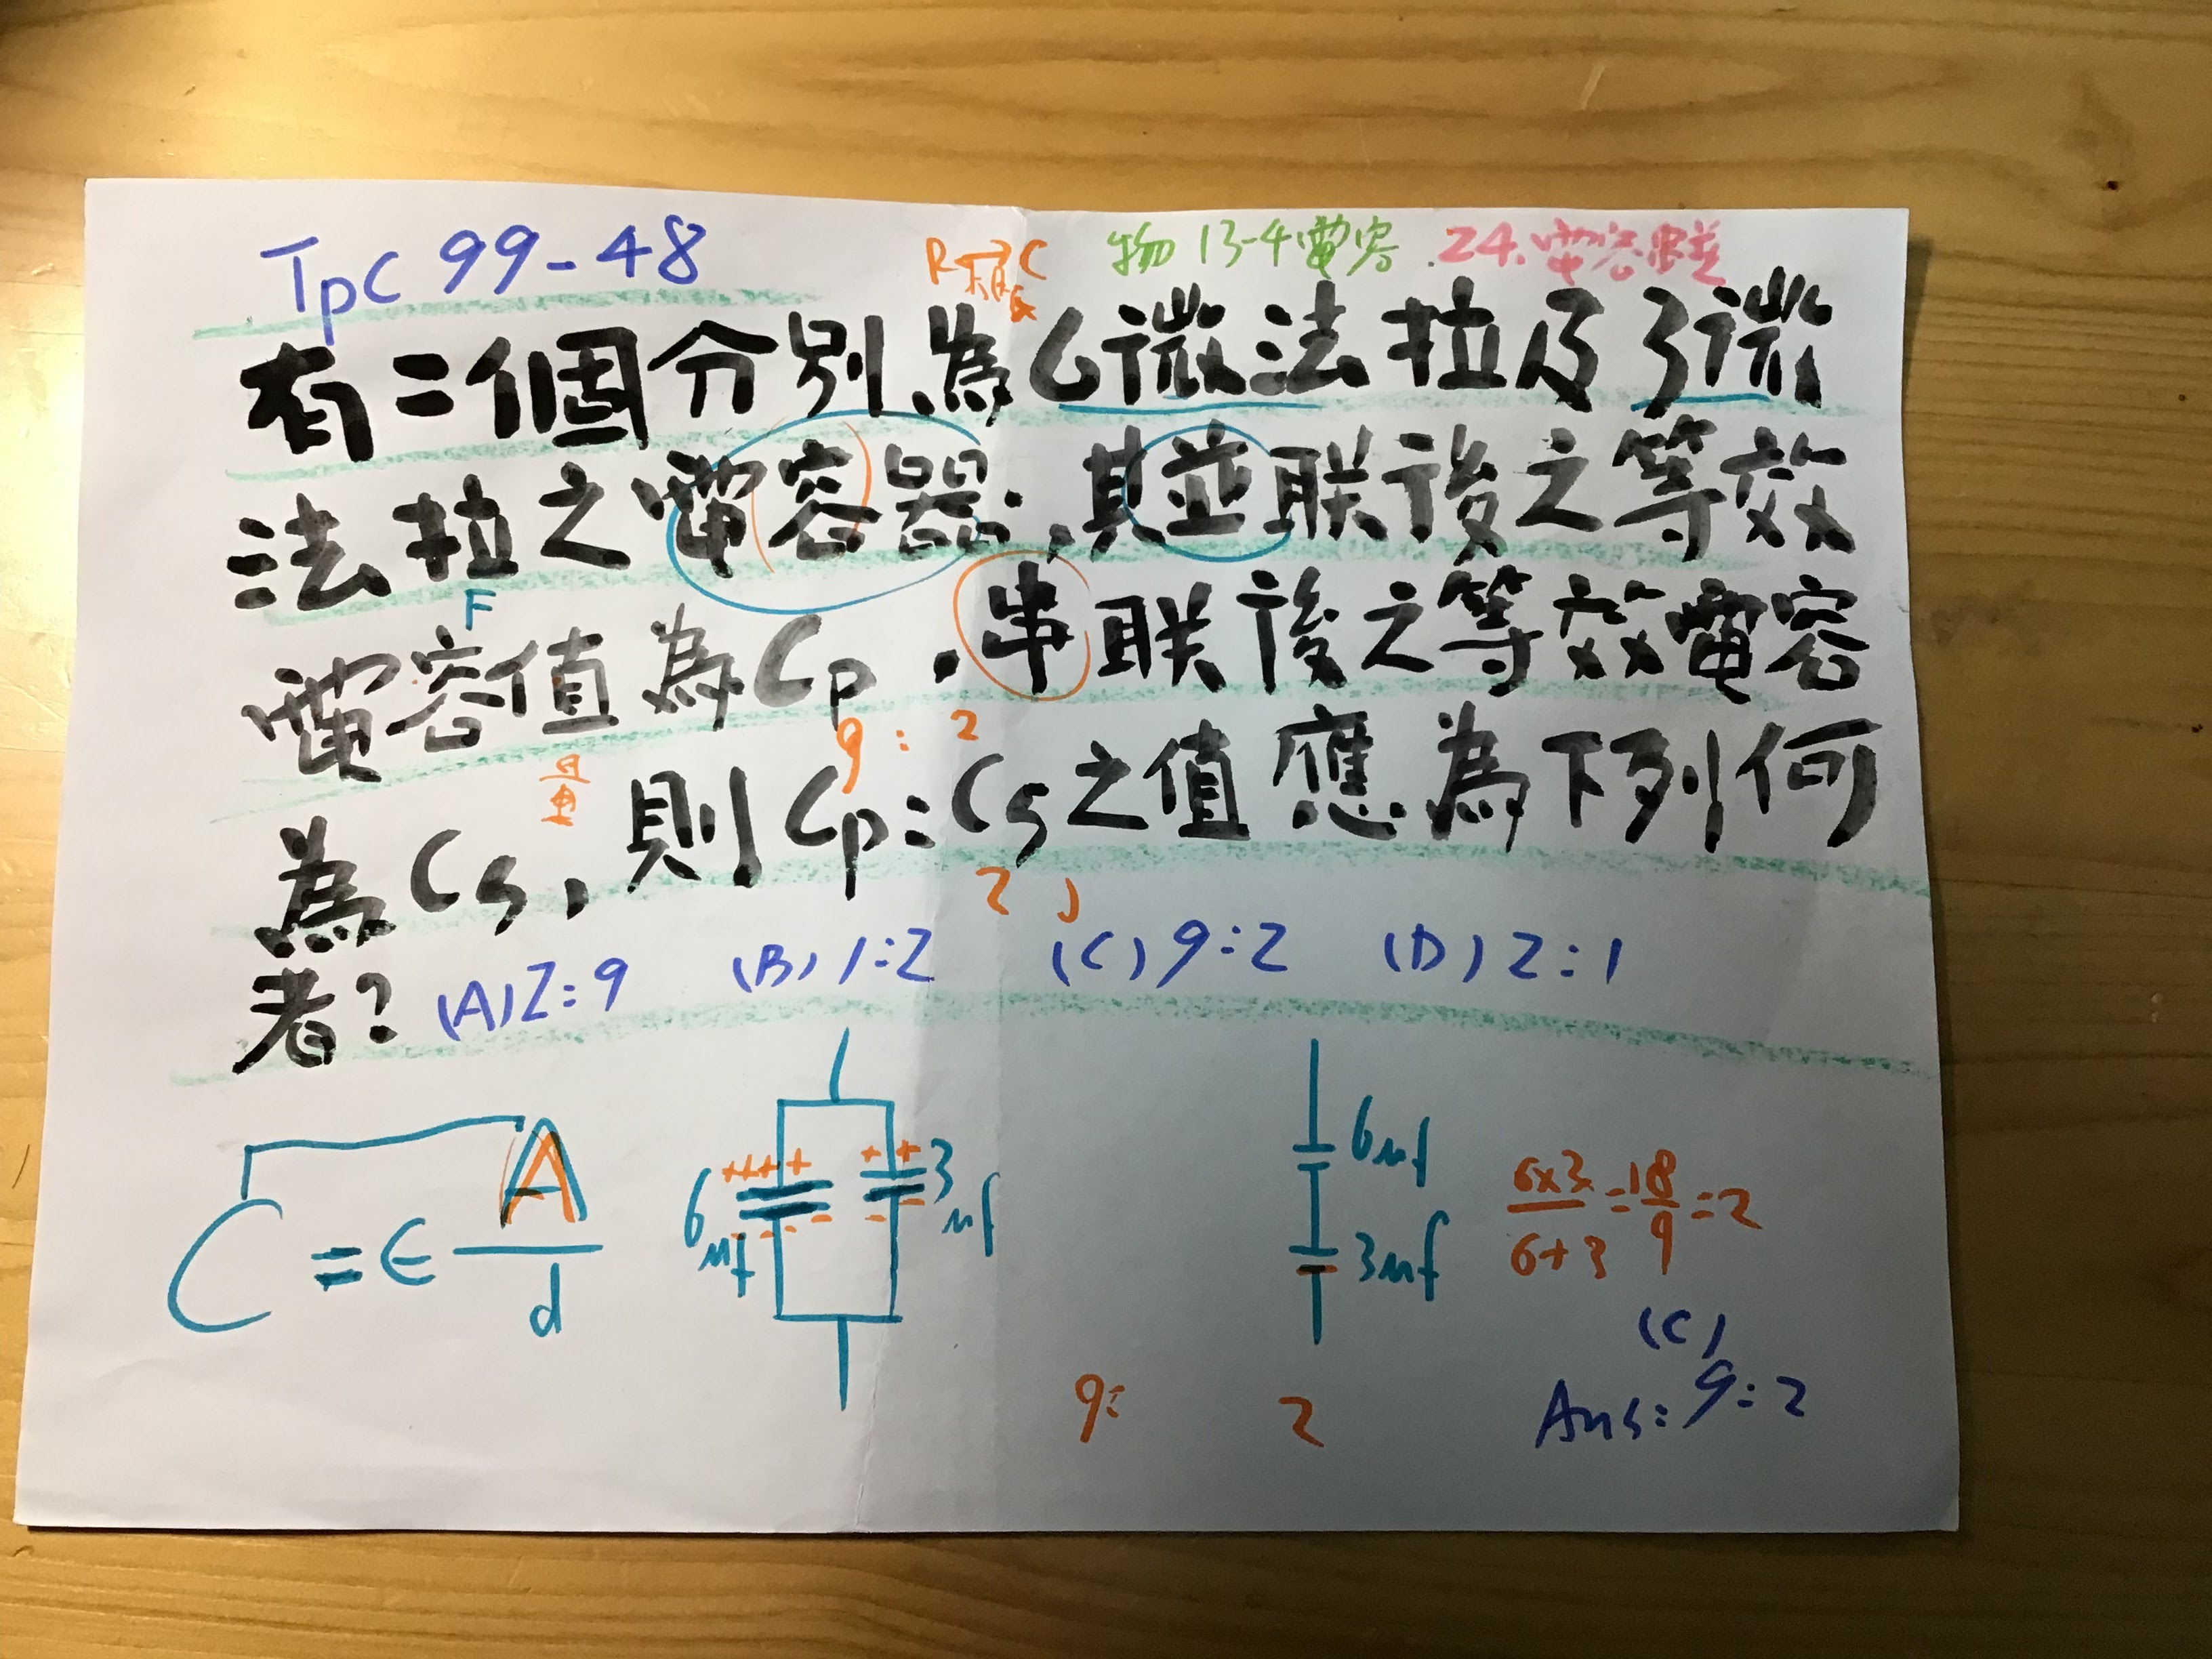 TpC 99-48
物 13-4 電容 . 24. 電容串並
R 相反 C
有二個分別為6微法拉及3微
法拉之電容器,其並联後之等效
F
電容值為Cp,串联後之等效電容
量
9:2
為Cs,則Cp:Cs之值應為下列何
2
者? (A) 2:9 (B) 1:2 (C) 9:2 (D) 2:1
C = ϵ A/d
6μf
3μf
6μf
3μf
6×3/6+3 = 18/9 = 2
9: 2
(C)
Ans: 9:2